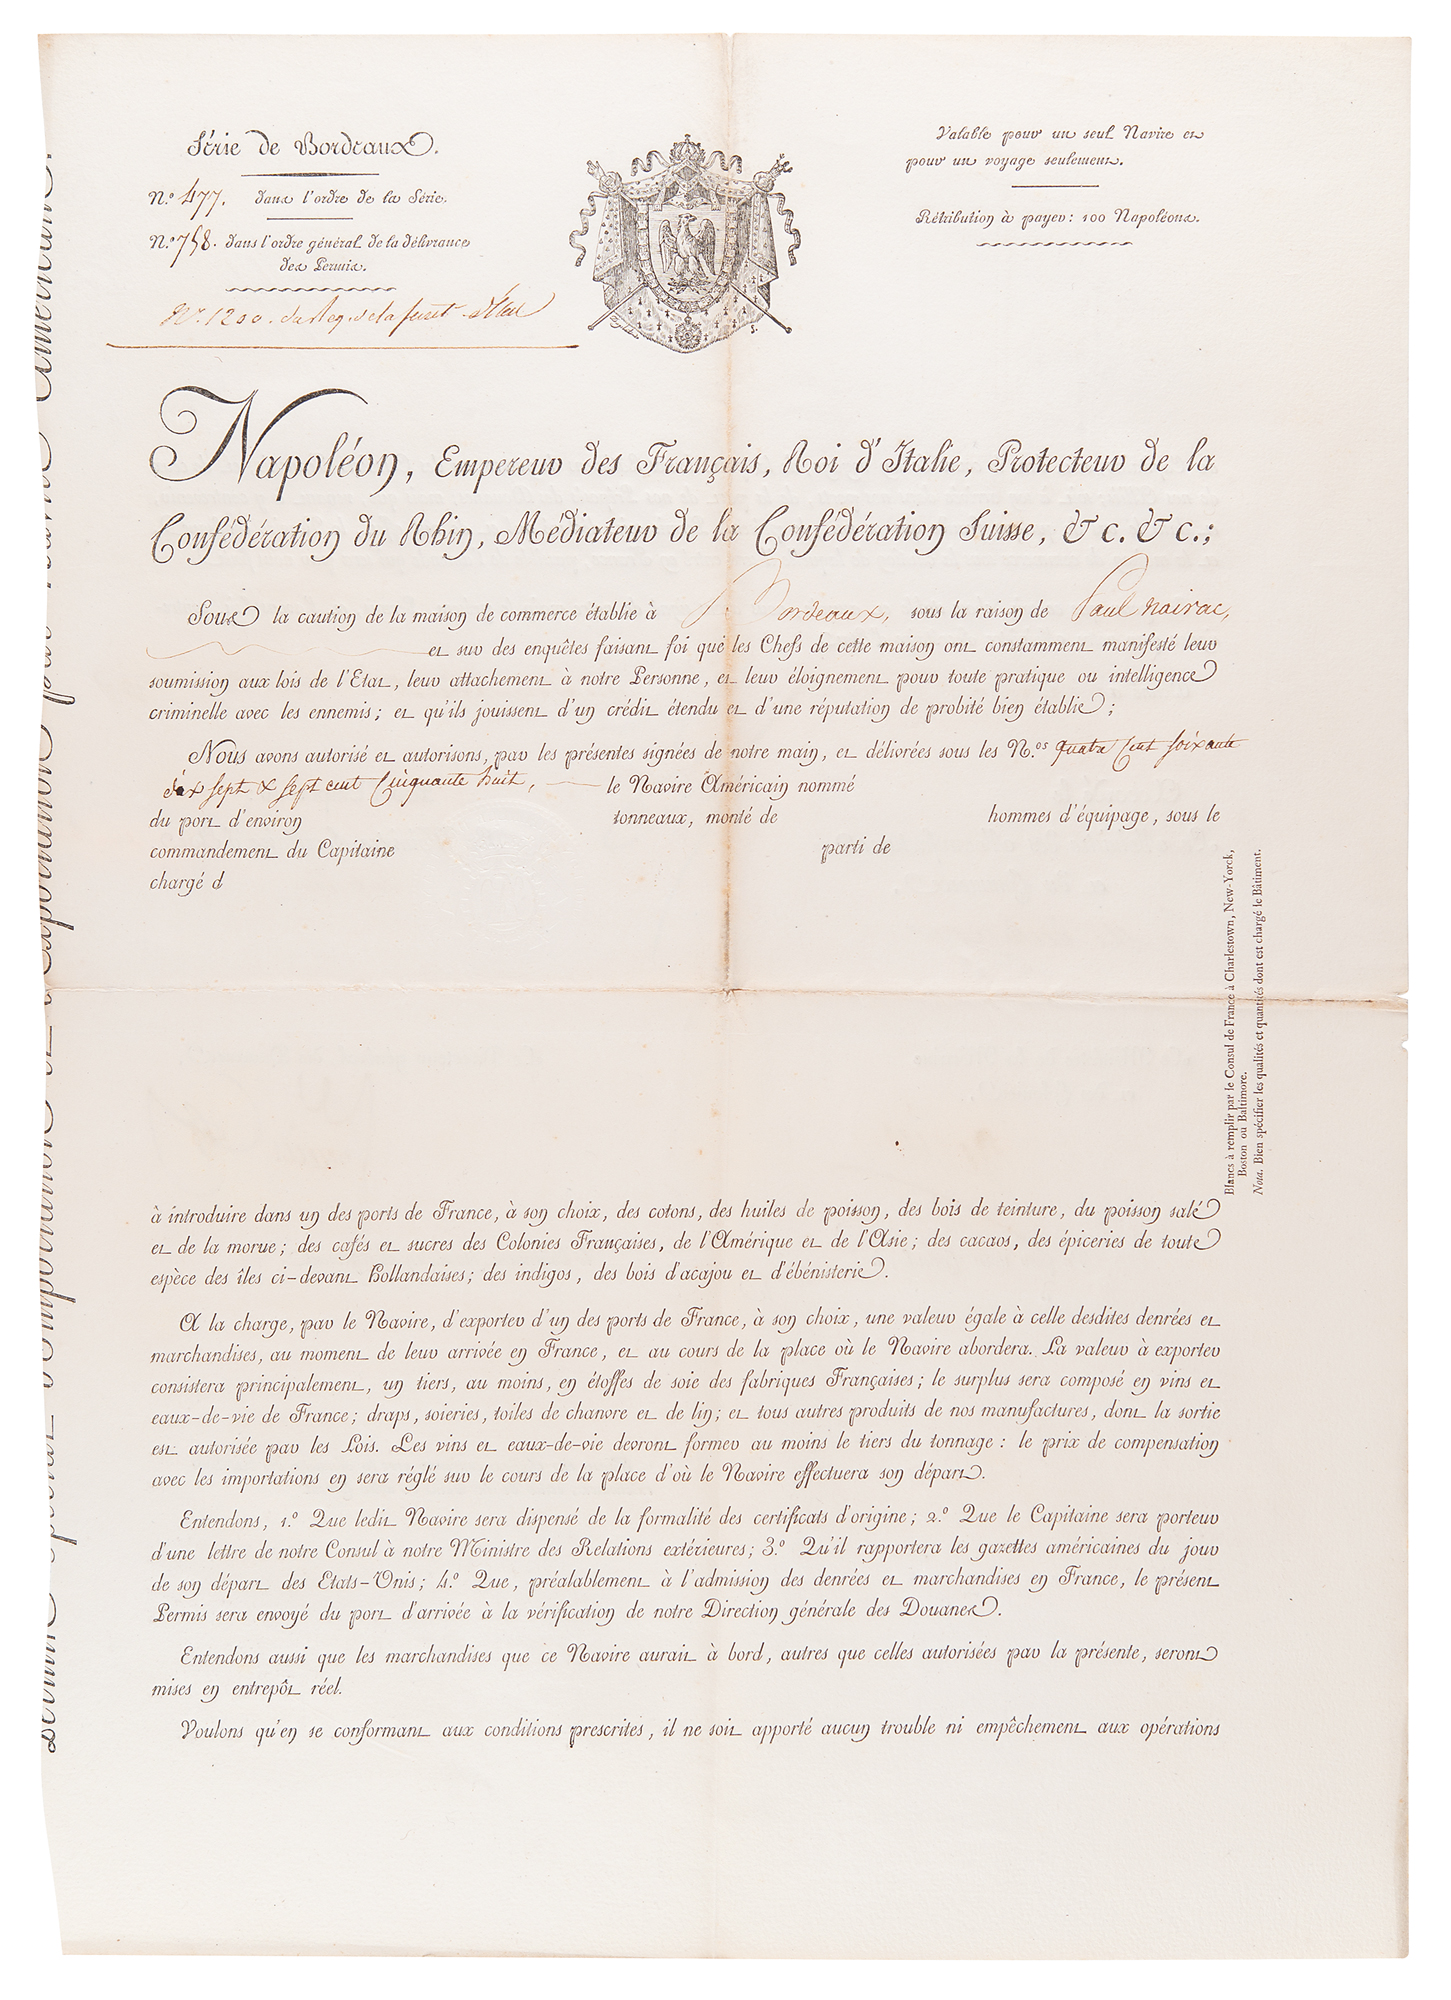 Série de Bordeaux.
N.º 477. dans l'ordre de la Série.
N.º 758. dans l'ordre général de la délivrance
des Permis.
N.º 1200. du Reg. de la
Valable pour un seul Navire et
pour un voyage seulement.
Rétribution à payer : 100 Napoléons.
Napoléon, Empereur des Français, Roi d'Italie, Protecteur de la
Confédération du Rhin, Médiateur de la Confédération Suisse, &c. &c.;
Sous la caution de la maison de commerce établie à Bordeaux, sous la raison de Paul Nairac,
et sur des enquêtes faisant foi que les Chefs de cette maison ont constamment manifesté leur
soumission aux lois de l'Etat, leur attachement à notre Personne, et leur éloignement pour toute pratique ou intelligence
criminelle avec les ennemis ; et qu'ils jouissent d'un crédit étendu et d'une réputation de probité bien établie ;
Nous avons autorisé et autorisons, par les présentes signées de notre main, et délivrées sous les N.ºs quatre cent soixante
dix sept & sept cent cinquante huit, le Navire Américain nommé
du port d'environ tonneaux, monté de hommes d'équipage, sous le
commandement du Capitaine parti de
chargé d
Blancs à remplir par le Consul de France à Charlestown, New-Yorck,
Boston ou Baltimore.
Nota. Bien spécifier les qualités et quantités dont est chargé le Bâtiment.
à introduire dans un des ports de France, à son choix, des cotons, des huiles de poisson, des bois de teinture, du poisson salé
et de la morue ; des cafés et sucres des Colonies Françaises, de l'Amérique et de l'Asie ; des cacaos, des épiceries de toute
espèce des îles ci-devant Hollandaises ; des indigos, des bois d'acajou et d'ébénisterie.
A la charge, par le Navire, d'exporter d'un des ports de France, à son choix, une valeur égale à celle desdites denrées et
marchandises, au moment de leur arrivée en France, et au cours de la place où le Navire abordera. La valeur à exporter
consistera principalement, un tiers, au moins, en étoffes de soie des fabriques Françaises ; le surplus sera composé en vins et
eaux-de-vie de France ; draps, soieries, toiles de chanvre et de lin ; et tous autres produits de nos manufactures, dont la sortie
est autorisée par les Lois. Les vins et eaux-de-vie devront former au moins le tiers du tonnage : le prix de compensation
avec les importations en sera réglé sur le cours de la place d'où le Navire effectuera son départ.
Entendons, 1.º Que ledit Navire sera dispensé de la formalité des certificats d'origine ; 2.º Que le Capitaine sera porteur
d'une lettre de notre Consul à notre Ministre des Relations extérieures ; 3.º Qu'il rapportera les gazettes américaines du jour
de son départ des Etats-Unis ; 4.º Que, préalablement à l'admission des denrées et marchandises en France, le présent
Permis sera envoyé du port d'arrivée à la vérification de notre Direction générale des Douanes.
Entendons aussi que les marchandises que ce Navire aurait à bord, autres que celles autorisées par la présente, seront
mises en entrepôt réel.
Voulons qu'en se conformant aux conditions prescrites, il ne soit apporté aucun trouble ni empêchement aux opérations